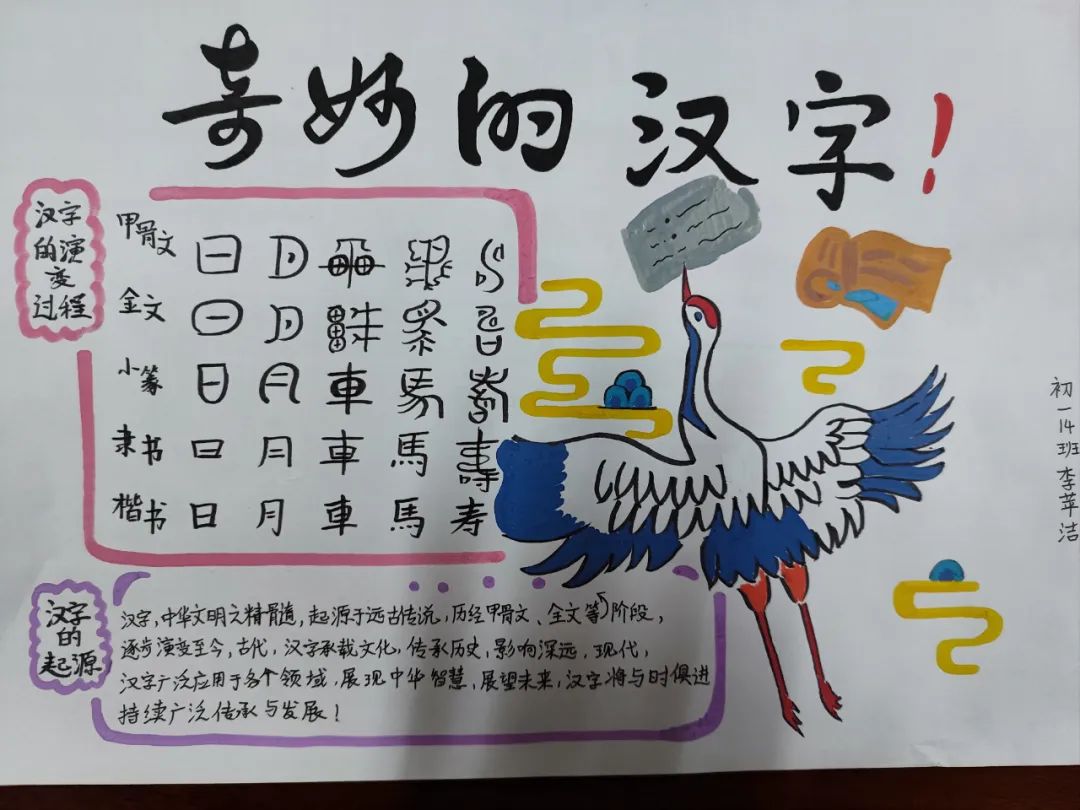 奇妙的汉字!
汉字
的演
变
过程
甲骨文
金文
小篆
隶书 日 月 車 馬 壽
楷书 日 月 車 馬 寿
汉字
的
起源
汉字,中华文明之精髓,起源于远古传说,历经甲骨文、金文等阶段,
逐步演变至今,古代,汉字承载文化,传承历史,影响深远,现代,
汉字广泛应用于各个领域,展现中华智慧,展望未来,汉字将与时俱进
持续广泛传承与发展!
初一14班李苹洁